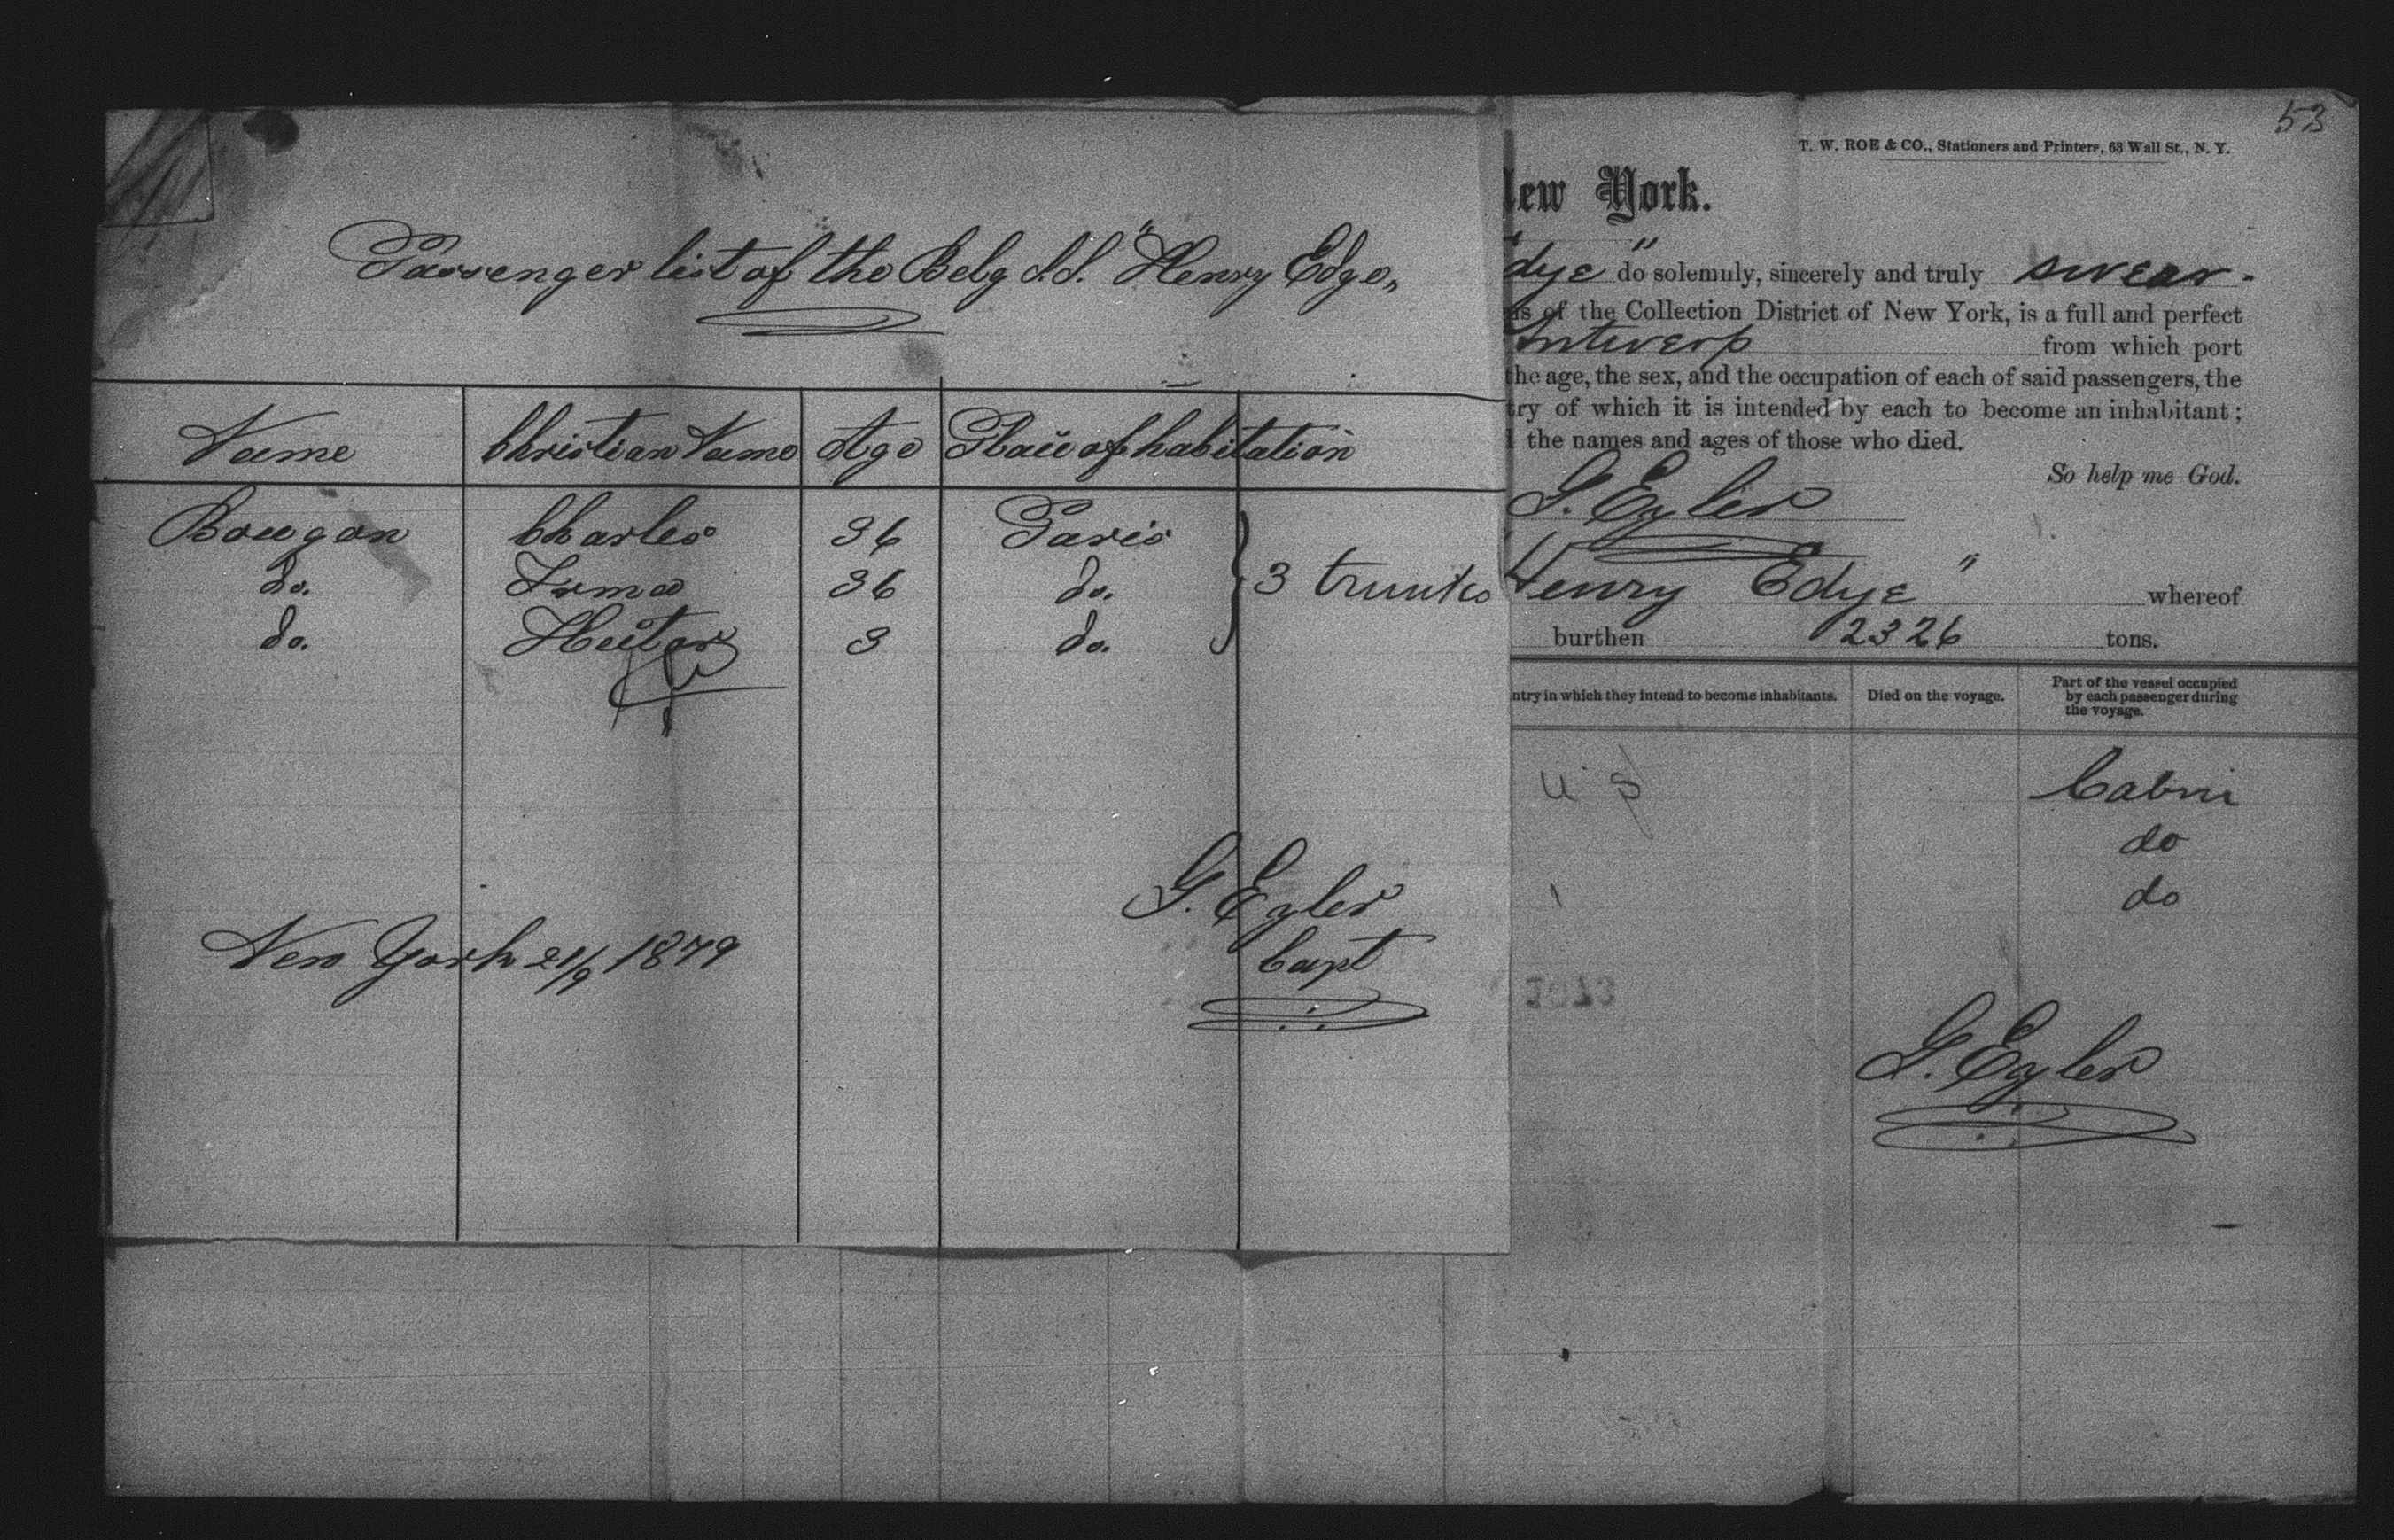 Passenger list of the Belg S.S. "Henry Edye"
Name Christian Name Age Place of habitation
Bougon Charles 36 Paris
do. Irma 36 do. 3 trunks
do. Hector 3 do.
G. Egler
Capt
New York 21/9 1879
53
T. W. ROE & CO., Stationers and Printers, 63 Wall St., N. Y.
ew York.
dye" do solemnly, sincerely and truly swear.
of the Collection District of New York, is a full and perfect
Antwerp from which port
the age, the sex, and the occupation of each of said passengers, the
try of which it is intended by each to become an inhabitant;
the names and ages of those who died.
So help me God.
G. Egler
Henry Edye" whereof
burthen 2326 tons.
ntry in which they intend to become inhabitants. Died on the voyage. Part of the vessel occupied
by each passenger during
the voyage.
U S Cabin
do
do
G. Egler